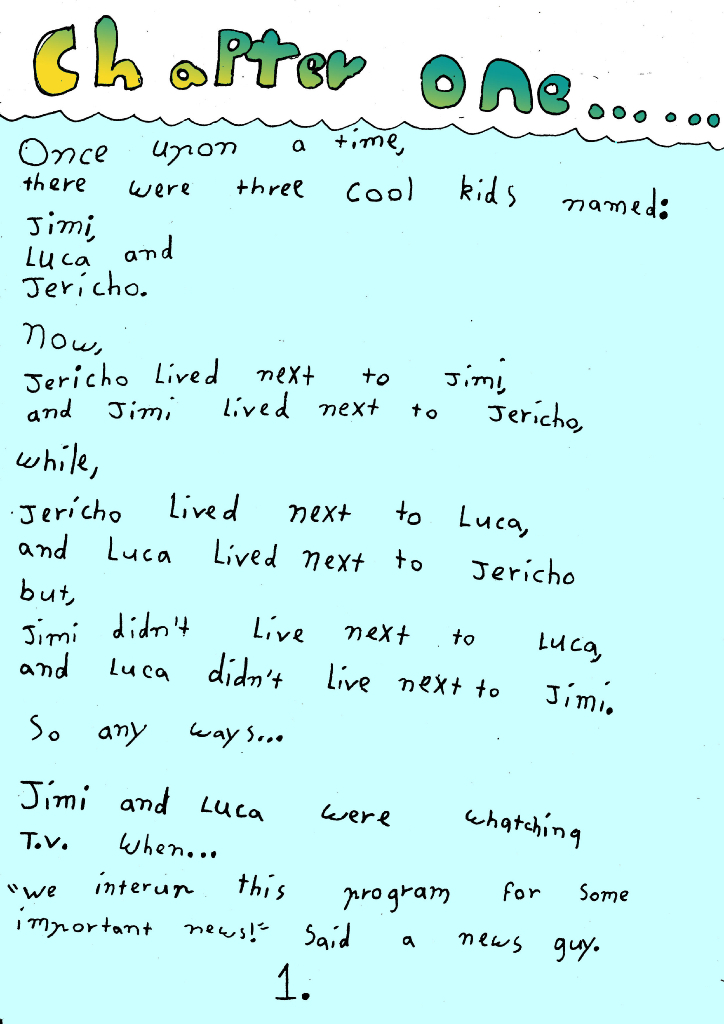 Chapter one......
Once upon a time,
there were three cool kids named:
Jimi,
Luca and
Jericho.
Now,
Jericho Lived next to Jimi,
and Jimi lived next to Jericho,
while,
Jericho lived next to Luca,
and Luca Lived next to Jericho
but,
Jimi didn't Live next to Luca,
and Luca didn't Live next to Jimi.
So any ways...
Jimi and Luca were whatching
T.V. when...
"we interun this program for some
important news!" said a news guy.
1.